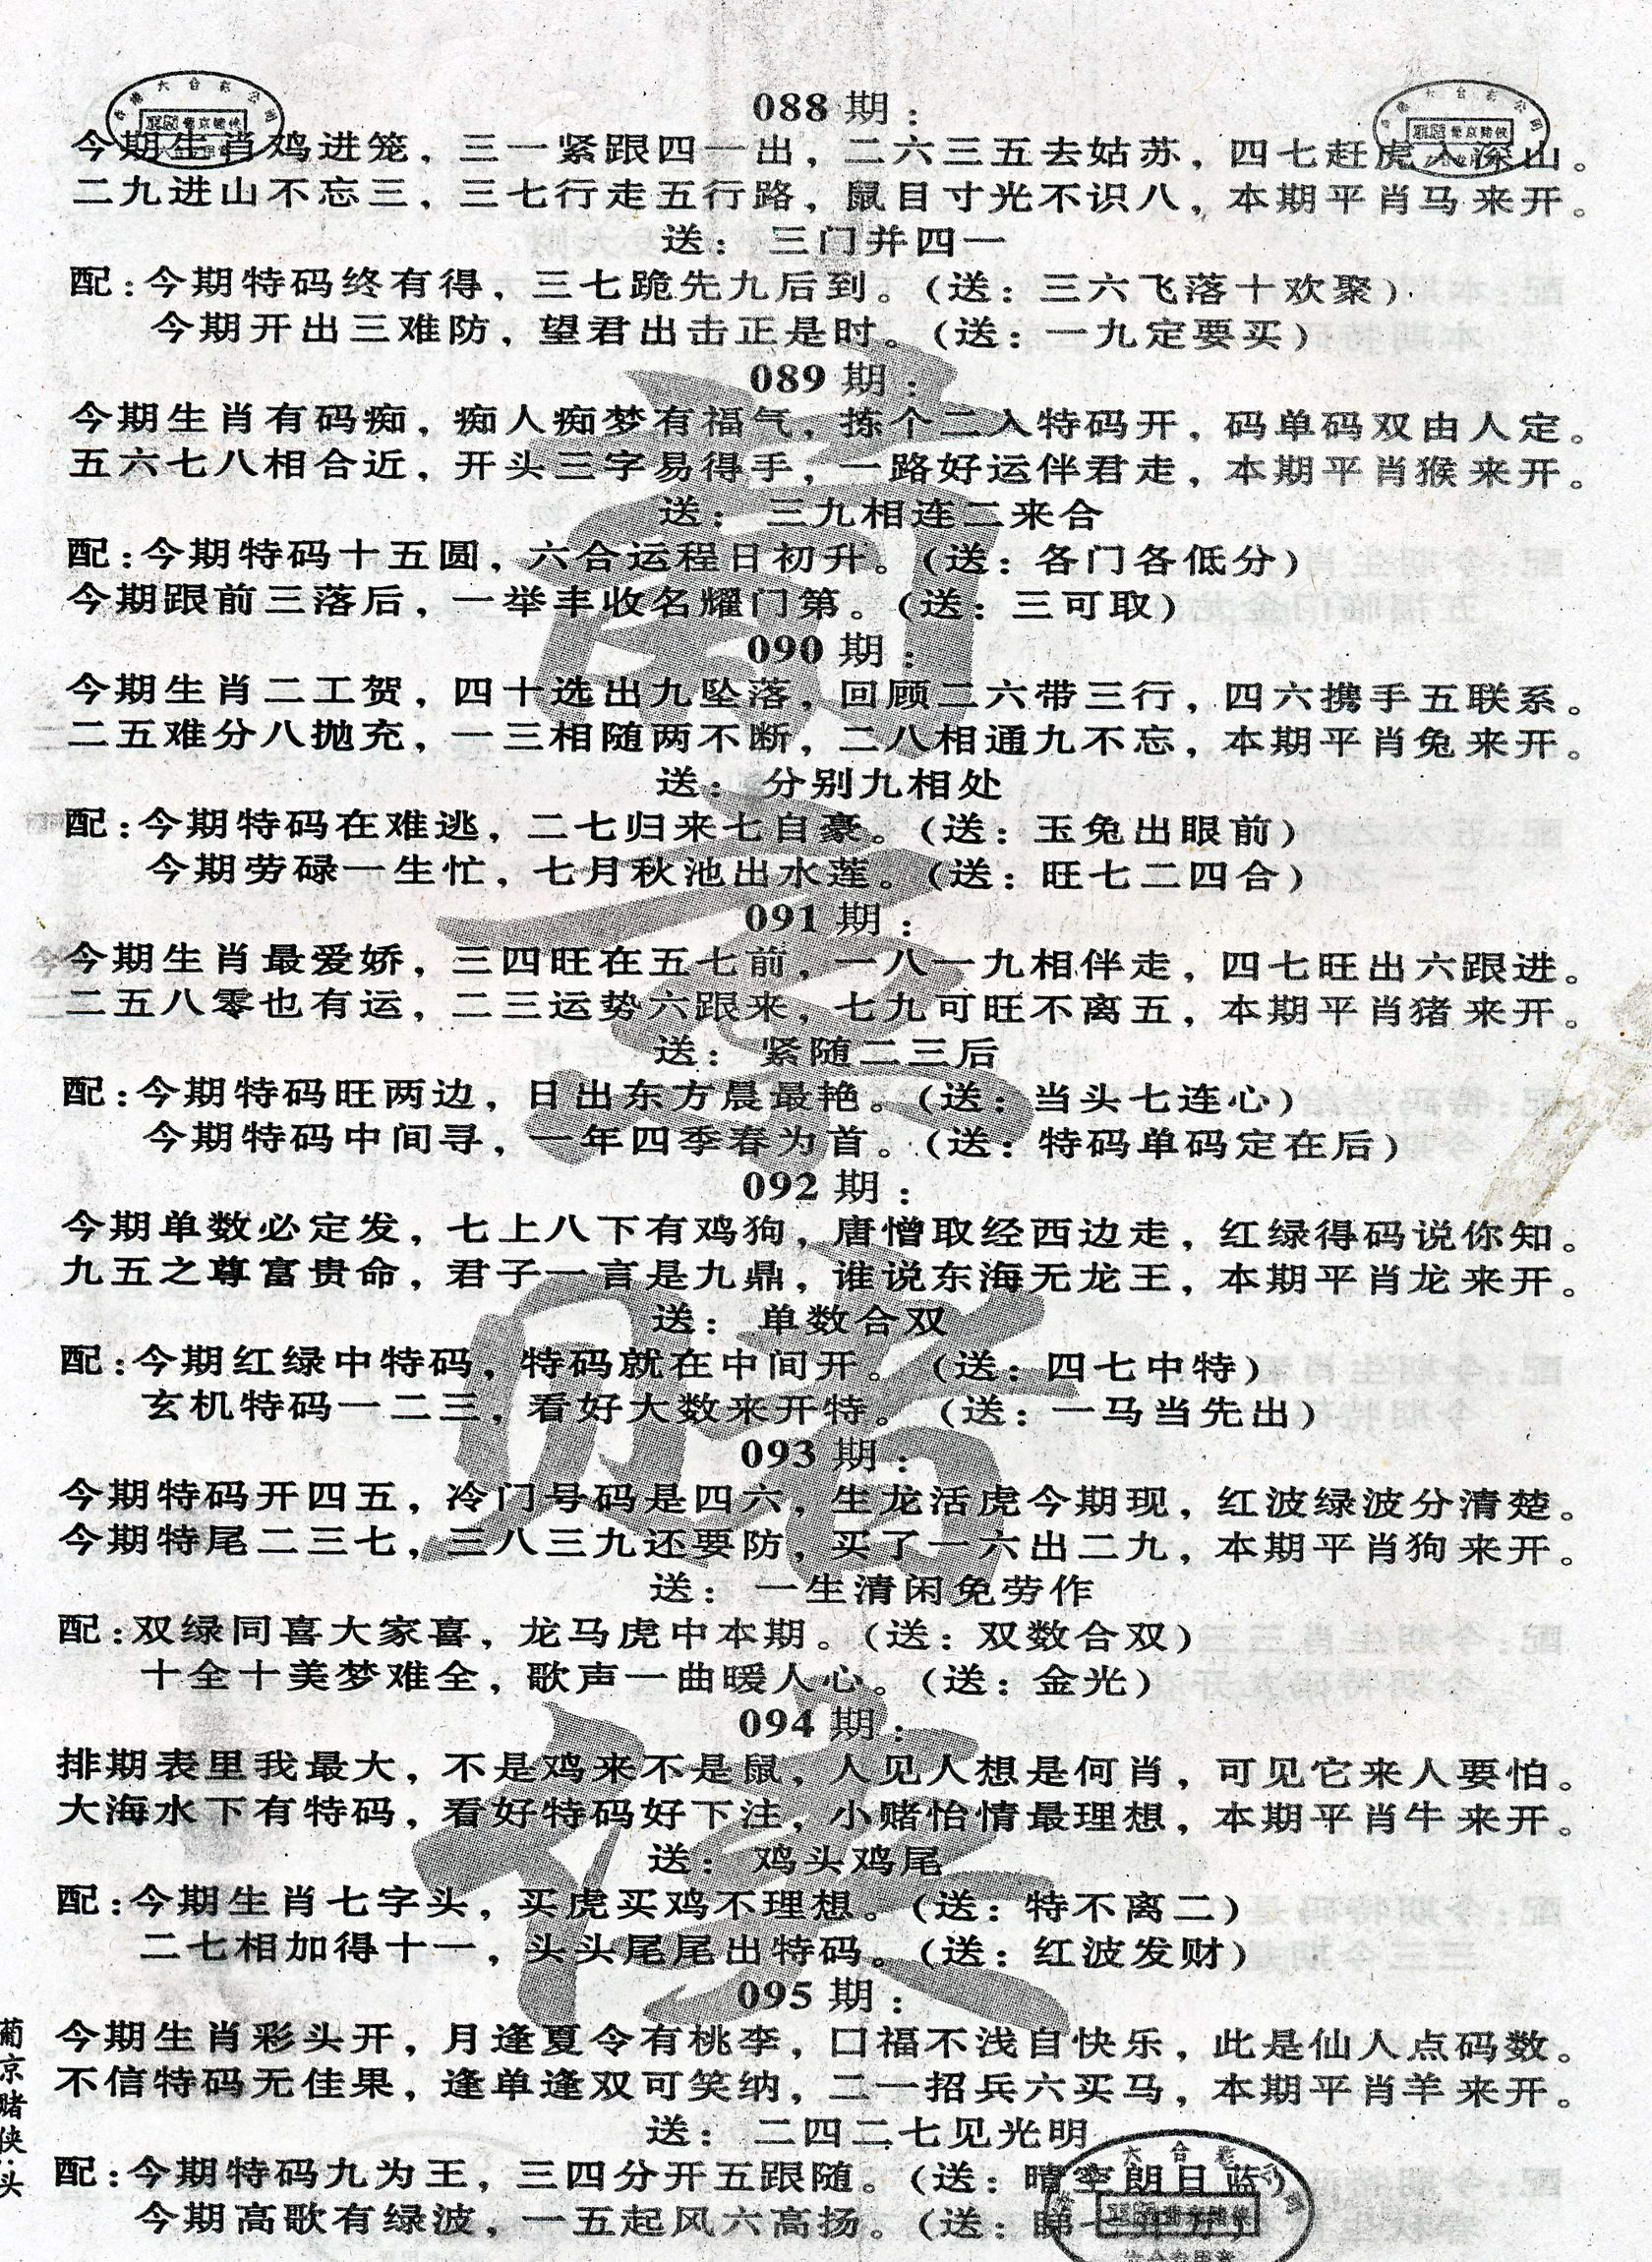 088 期：
今期生肖鸡进笼，三一紧跟四一出，二六三五去姑苏，四七赶虎入深山。
二九进山不忘三，三七行走五行路，鼠目寸光不识八，本期平肖马来开。
送：三门并四一
配：今期特码终有得，三七跪先九后到。（送：三六飞落十欢聚）
今期开出三难防，望君出击正是时。（送：一九定要买）
089 期：
今期生肖有码痴，痴人痴梦有福气，拣个二入特码开，码单码双由人定。
五六七八相合近，开头三字易得手，一路好运伴君走，本期平肖猴来开。
送：三九相连二来合
配：今期特码十五圆，六合运程日初升。（送：各门各低分）
今期跟前三落后，一举丰收名耀门第。（送：三可取）
090 期：
今期生肖二工贺，四十选出九坠落，回顾二六带三行，四六携手五联系。
二五难分八抛充，一三相随两不断，二八相通九不忘，本期平肖兔来开。
送：分别九相处
配：今期特码在难逃，二七归来七自豪。（送：玉兔出眼前）
今期劳碌一生忙，七月秋池出水莲。（送：旺七二四合）
091 期：
今期生肖最爱娇，三四旺在五七前，一八一九相伴走，四七旺出六跟进。
二五八零也有运，二三运势六跟来，七九可旺不离五，本期平肖猪来开。
送：紧随二三后
配：今期特码旺两边，日出东方晨最艳。（送：当头七连心）
今期特码中间寻，一年四季春为首。（送：特码单码定在后）
092 期：
今期单数必定发，七上八下有鸡狗，唐憎取经西边走，红绿得码说你知。
九五之尊富贵命，君子一言是九鼎，谁说东海无龙王，本期平肖龙来开。
送：单数合双
配：今期红绿中特码，特码就在中间开。（送：四七中特）
玄机特码一二三，看好大数来开特。（送：一马当先出）
093 期：
今期特码开四五，冷门号码是四六，生龙活虎今期现，红波绿波分清楚。
今期特尾二三七，三八三九还要防，买了一六出二九，本期平肖狗来开。
送：一生清闲免劳作
配：双绿同喜大家喜，龙马虎中本期。（送：双数合双）
十全十美梦难全，歌声一曲暖人心。（送：金光）
094 期：
排期表里我最大，不是鸡来不是鼠，人见人想是何肖，可见它来人要怕。
大海水下有特码，看好特码好下注，小赌怡情最理想，本期平肖牛来开。
送：鸡头鸡尾
配：今期生肖七字头，买虎买鸡不理想。（送：特不离二）
二七相加得十一，头头尾尾出特码。（送：红波发财）
095 期：
今期生肖彩头开，月逢夏令有桃李，口福不浅自快乐，此是仙人点码数。
不信特码无佳果，逢单逢双可笑纳，二一招兵六买马，本期平肖羊来开。
送：二四二七见光明
配：今期特码九为王，三四分开五跟随。（送：晴空朗日蓝）
今期高歌有绿波，一五起风六高扬。（送：
葡京赌侠：头
葡京赌侠